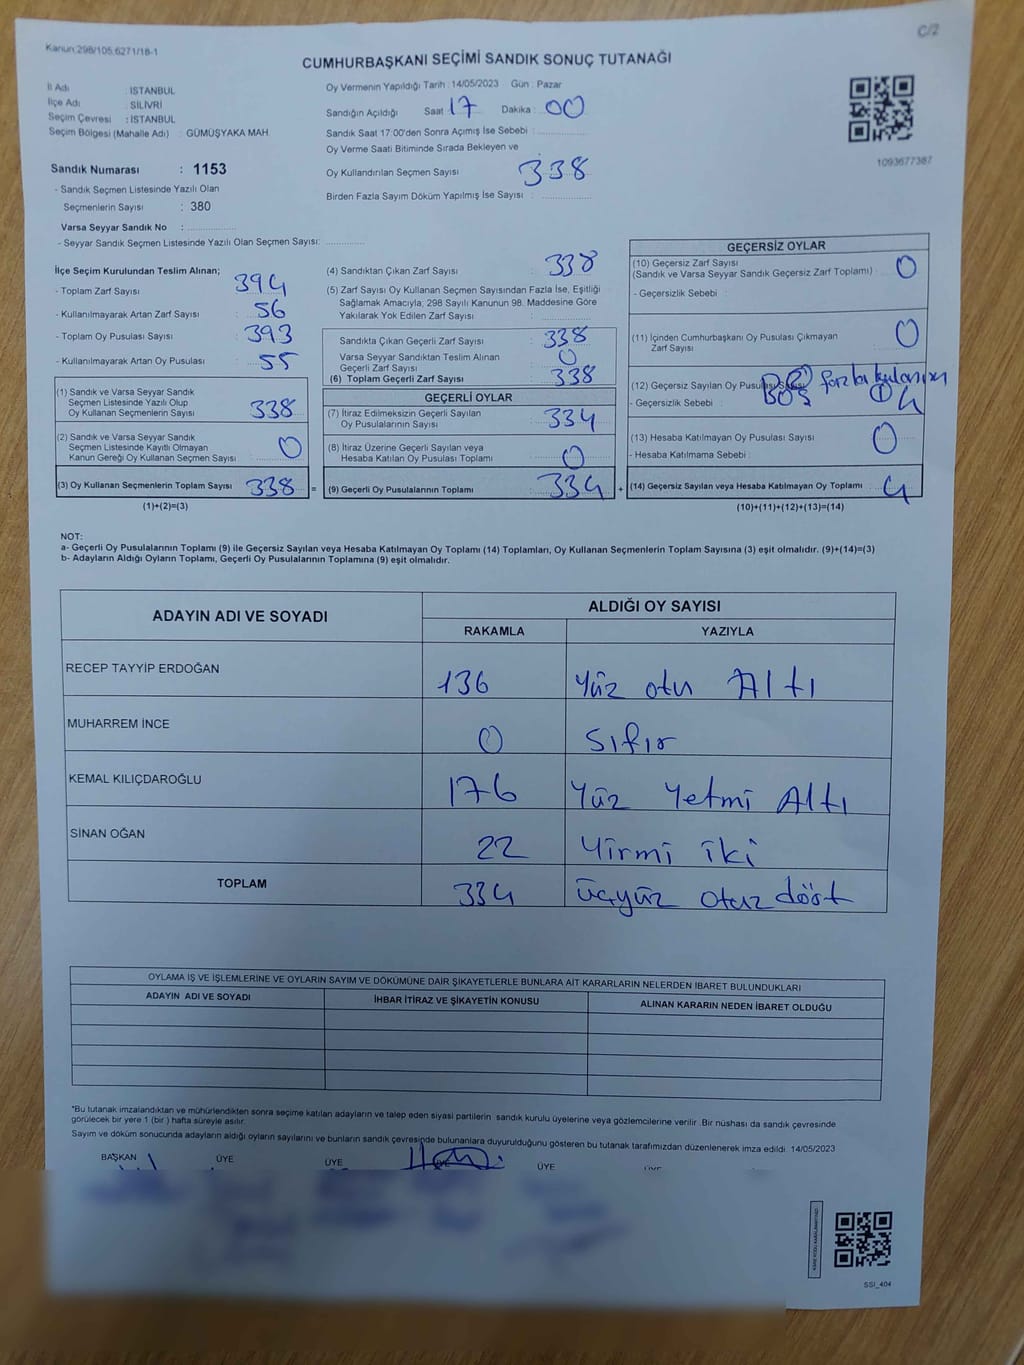 Kanun:298/105,6271/18-1
C/2
CUMHURBAŞKANI SEÇİMİ SANDIK SONUÇ TUTANAĞI
İl Adı : İSTANBUL
İlçe Adı : SİLİVRİ
Seçim Çevresi : İSTANBUL
Seçim Bölgesi (Mahalle Adı) : GÜMÜŞYAKA MAH
Sandık Numarası : 1153
- Sandık Seçmen Listesinde Yazılı Olan
Seçmenlerin Sayısı : 380
Varsa Seyyar Sandık No :
- Seyyar Sandık Seçmen Listesinde Yazılı Olan Seçmen Sayısı:
Oy Vermenin Yapıldığı Tarih : 14/05/2023 Gün : Pazar
Sandığın Açıldığı Saat : 17 Dakika : 00
Sandık Saat 17:00'den Sonra Açımış İse Sebebi :
Oy Verme Saati Bitiminde Sırada Bekleyen ve
Oy Kullandırılan Seçmen Sayısı 338
Birden Fazla Sayım Döküm Yapılmış İse Sayısı :
1093677387
İlçe Seçim Kurulundan Teslim Alınan;
- Toplam Zarf Sayısı : 394
- Kullanılmayarak Artan Zarf Sayısı : 56
- Toplam Oy Pusulası Sayısı : 393
- Kullanılmayarak Artan Oy Pusulası : 55
(1) Sandık ve Varsa Seyyar Sandık
Seçmen Listesinde Yazılı Olup
Oy Kullanan Seçmenlerin Sayısı : 338
(2) Sandık ve Varsa Seyyar Sandık
Seçmen Listesinde Kayıtlı Olmayan
Kanun Gereği Oy Kullanan Seçmen Sayısı : 0
(3) Oy Kullanan Seçmenlerin Toplam Sayısı : 338 =
(1)+(2)=(3)
(4) Sandıktan Çıkan Zarf Sayısı : 338
(5) Zarf Sayısı Oy Kullanan Seçmen Sayısından Fazla İse, Eşitliği
Sağlamak Amacıyla; 298 Sayılı Kanunun 98. Maddesine Göre
Yakılarak Yok Edilen Zarf Sayısı :
Sandıkta Çıkan Geçerli Zarf Sayısı : 338
Varsa Seyyar Sandıktan Teslim Alınan
Geçerli Zarf Sayısı : 0
(6) Toplam Geçerli Zarf Sayısı : 338
GEÇERLİ OYLAR
(7) İtiraz Edilmeksizin Geçerli Sayılan
Oy Pusulalarının Sayısı : 334
(8) İtiraz Üzerine Geçerli Sayılan veya
Hesaba Katılan Oy Pusulası Toplamı : 0
(9) Geçerli Oy Pusulalarının Toplamı : 334 +
GEÇERSİZ OYLAR
(10) Geçersiz Zarf Sayısı
(Sandık ve Varsa Seyyar Sandık Geçersiz Zarf Toplamı) : 0
- Geçersizlik Sebebi :
(11) İçinden Cumhurbaşkanı Oy Pusulası Çıkmayan
Zarf Sayısı : 0
(12) Geçersiz Sayılan Oy Pusulası Sayısı
- Geçersizlik Sebebi : BOŞ 1 4
(13) Hesaba Katılmayan Oy Pusulası Sayısı : 0
- Hesaba Katılmama Sebebi :
(14) Geçersiz Sayılan veya Hesaba Katılmayan Oy Toplamı : 4
(10)+(11)+(12)+(13)=(14)
NOT:
a- Geçerli Oy Pusulalarının Toplamı (9) ile Geçersiz Sayılan veya Hesaba Katılmayan Oy Toplamı (14) Toplamları, Oy Kullanan Seçmenlerin Toplam Sayısına (3) eşit olmalıdır. (9)+(14)=(3)
b- Adayların Aldığı Oyların Toplamı, Geçerli Oy Pusulalarının Toplamına (9) eşit olmalıdır.
ADAYIN ADI VE SOYADI ALDIĞI OY SAYISI
RAKAMLA YAZIYLA
RECEP TAYYİP ERDOĞAN 136 Yüz otu Altı
MUHARREM İNCE 0 Sıfır
KEMAL KILIÇDAROĞLU 176 Yüz Yetmi Altı
SİNAN OĞAN 22 Yirmi iki
TOPLAM 334 üçyüz otuz dört
OYLAMA İŞ VE İŞLEMLERİNE VE OYLARIN SAYIM VE DÖKÜMÜNE DAİR ŞİKAYETLERLE BUNLARA AİT KARARLARIN NELERDEN İBARET BULUNDUKLARI
ADAYIN ADI VE SOYADI İHBAR İTİRAZ VE ŞİKAYETİN KONUSU ALINAN KARARIN NEDEN İBARET OLDUĞU
*Bu tutanak imzalandıktan ve mühürlendikten sonra seçime katılan adayların ve talep eden siyasi partilerin sandık kurulu üyelerine veya gözlemcilerine verilir. Bir nüshası da sandık çevresinde
görülecek bir yere 1 (bir ) hafta süreyle asılır.
Sayım ve döküm sonucunda adayların aldığı oyların sayılarını ve bunların sandık çevresinde bulunanlara duyurulduğunu gösteren bu tutanak tarafımızdan düzenlenerek imza edildi. 14/05/2023
BAŞKAN ÜYE ÜYE ÜYE ÜYE
SSI_404